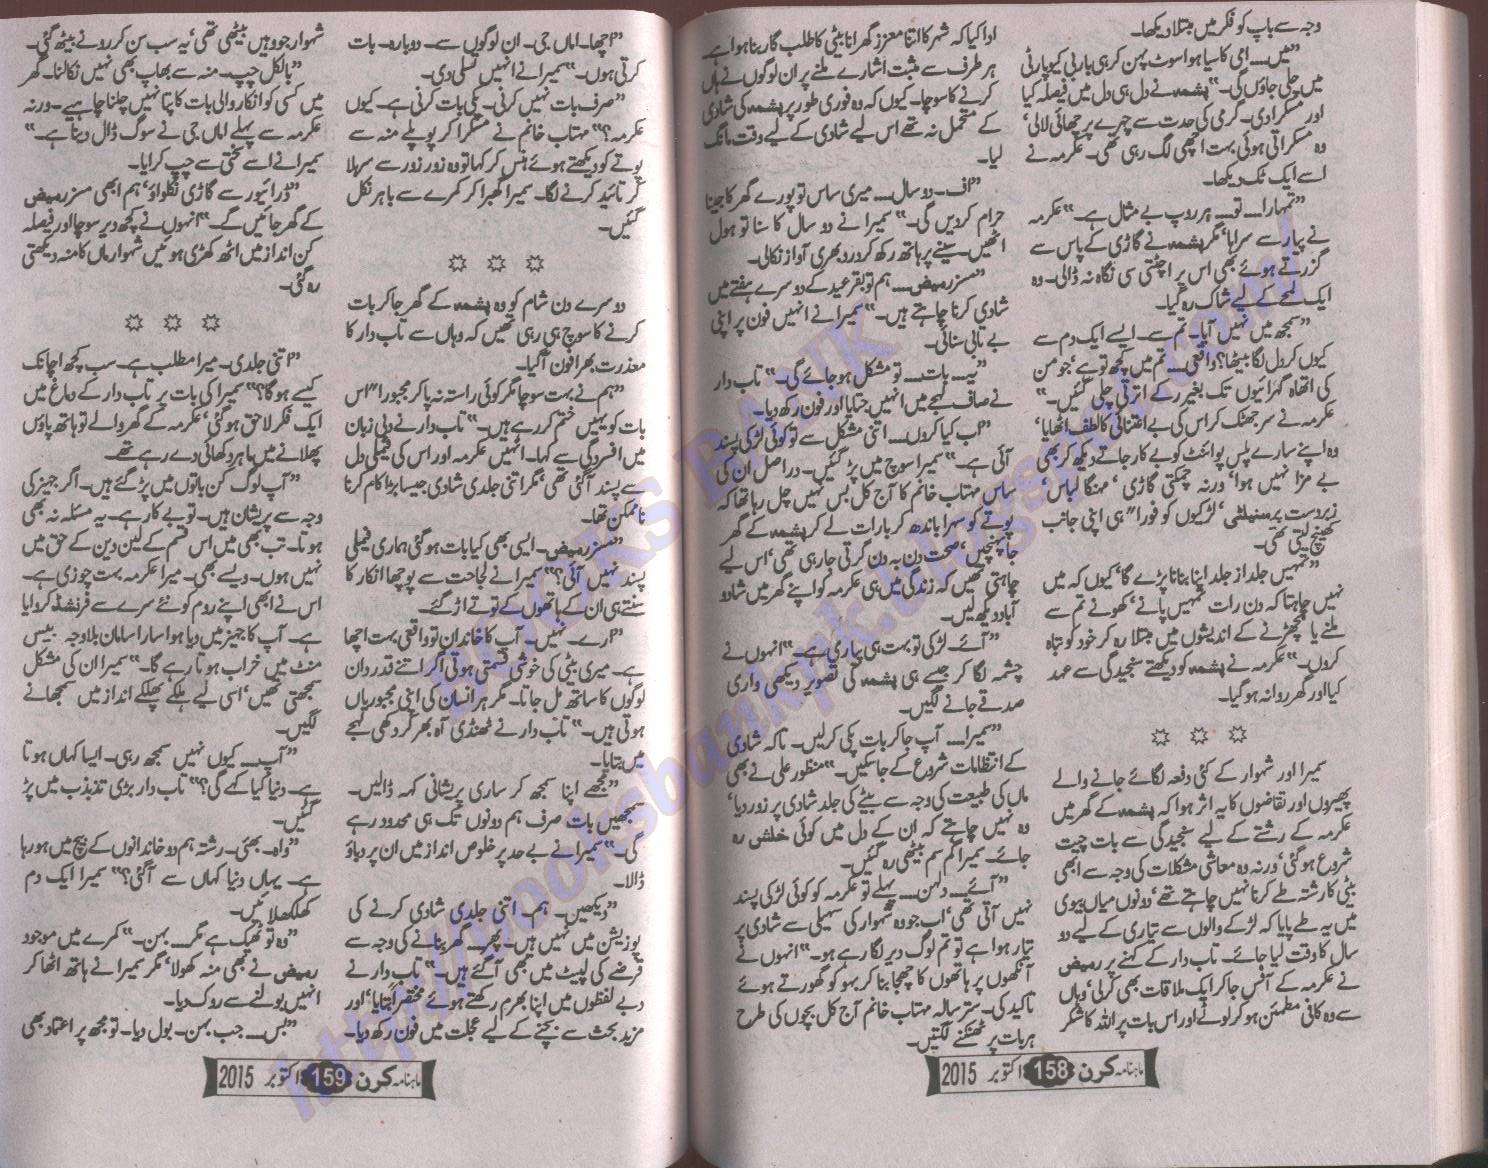 وجہ سے باپ کو فکر میں مبتلا دیکھا۔
"میں.... امی کا سیا ہوا سوٹ پہن کر ہی باربی کیو پارٹی
میں چلی جاؤں گی۔" یشمہ نے دل ہی دل میں فیصلہ کیا
اور مسکرا دی۔ گرمی کی حدت سے چہرے پر چھائی لالی،
وہ مسکراتی ہوئی بہت اچھی لگ رہی تھی۔ عکرمہ نے
اسے ایک ٹک دیکھا۔
"تمہارا.... تو.... ہر روپ بے مثال ہے۔" عکرمہ
نے پیار سے سراہا، مگر یشمہ نے گاڑی کے پاس سے
گزرتے ہوئے بھی اس پر اچٹتی سی نگاہ نہ ڈالی۔ وہ
ایک لمحے کے لیے شاک رہ گیا۔
"سمجھ میں نہیں آیا۔ تم سے۔ ایسے ایک دم سے
کیوں کر دل لگا بیٹھا؟ واقعی.... تم میں کچھ تو ہے، جو من
کی اتھاہ گہرائیوں تک بغیر رکے اترتی چلی گئیں۔"
عکرمہ نے سر جھٹک کر اس کی بے اعتنائی کا لطف اٹھایا،
وہ اپنے سارے پلس پوائنٹ کو بے کار جاتے دیکھ کر بھی
بے مزا نہیں ہوا، ورنہ چمکتی گاڑی، مہنگا لباس،
زبردست پرسنیلٹی، لڑکیوں کو فورا" ہی اپنی جانب
کھینچ لیتی تھی۔
"تمہیں جلد از جلد اپنا بنانا پڑے گا، کیوں کہ میں
نہیں چاہتا کہ دن رات تمہیں پانے، کھونے تم سے
ملنے یا بچھڑنے کے اندیشوں میں مبتلا رہ کر خود کو تباہ
کروں۔" عکرمہ نے یشمہ کو دیکھتے سنجیدگی سے عہد
کیا اور گھر روانہ ہو گیا۔
سمیرا اور شہوار کے کئی دفعہ لگائے جانے والے
پھیروں اور تقاضوں کا یہ اثر ہوا کہ یشمہ کے گھر میں
عکرمہ کے رشتے کے لیے سنجیدگی سے بات چیت
شروع ہو گئی، ورنہ وہ معاشی مشکلات کی وجہ سے ابھی
بیٹی کا رشتہ طے کرنا نہیں چاہتے تھے، دونوں میاں بیوی
میں یہ طے پایا کہ لڑکے والوں سے تیاری کے لیے دو
سال کا وقت لیا جائے۔ تاب دار کے کہنے پر رمیض
نے عکرمہ کے آفس جا کر ایک ملاقات بھی کر لی، وہاں
سے وہ کافی مطمئن ہو کر لوٹے اور اس بات پر اللہ کا شکر
ادا کیا کہ شہر کا اتنا معزز گھرانا بیٹی کا طلب گار بنا ہوا ہے
ہر طرف سے مثبت اشارے ملنے پر ان لوگوں نے ہاں
کرنے کا سوچا۔ کیوں کہ وہ فوری طور پر یشمہ کی شادی
کے متحمل نہ تھے اس لیے شادی کے لیے وقت مانگ
لیا۔
"اف۔ دو سال.... میری ساس تو پورے گھر کا جینا
حرام کر دیں گی۔" سمیرا نے دو سال کا سنا تو ہول
اٹھیں۔ سینے پر ہاتھ رکھ کر درد بھری آواز نکالی۔
"مسز رمیض.... ہم تو بقر عید کے دوسرے ہفتے میں
شادی کرنا چاہتے ہیں۔" سمیرا نے انہیں فون پر اپنی
بے تابی سنائی۔
"یہ.... بات.... تو مشکل ہو جائے گی۔" تاب دار
نے صاف لہجے میں انہیں جتایا اور فون رکھ دیا۔
"اب کیا کروں.... اتنی مشکل سے تو کوئی لڑکی پسند
آئی ہے۔" سمیرا سوچ میں پڑ گئیں۔ دراصل ان کی
ساس مہتاب خانم کا آج کل بس نہیں چل رہا تھا کہ
پوتے کو سہرا باندھ کر بارات لے کر یشمہ کے گھر
جا پہنچیں، صحت دن بہ دن گرتی جا رہی تھی، اس لیے
چاہتی تھیں کہ زندگی میں ہی عکرمہ کو اپنے گھر میں شاد و
آباد دیکھ لیں۔
"آئے۔ لڑکی تو بہت ہی پیاری ہے۔" انہوں نے
چشمہ لگا کر جیسے ہی یشمہ کی تصویر دیکھی واری
صدقے جانے لگیں۔
"سمیرا.... آپ جا کر بات پکی کر لیں۔ تاکہ شادی
کے انتظامات شروع کیے جا سکیں۔" منظور علی نے بھی
ماں کی طبیعت کی وجہ سے بیٹے کی جلد شادی پر زور دیا،
وہ نہیں چاہتے کہ ان کے دل میں کوئی خلش رہ
جائے۔ سمیرا گم سم بیٹھی رہ گئیں۔
"آئے.... دلہن.... پہلے تو عکرمہ کو کوئی لڑکی پسند
نہیں آتی تھی، اب جو وہ شہوار کی سہیلی سے شادی پر
تیار ہوا ہے تو تم لوگ دیر لگا رہے ہو۔" انہوں نے
آنکھوں پر ہاتھوں کا چھجا بنا کر بہو کو گھورتے ہوئے
تاکید کی۔ ستر سالہ مہتاب خانم آج کل بچوں کی طرح
ہر بات پر ٹھنکنے لگتیں۔
ماہنامہ کرن 158 اکتوبر 2015
"اچھا۔ اماں جی۔ ان لوگوں سے۔ دوبارہ۔ بات
کرتی ہوں۔" سمیرا نے انہیں تسلی دی۔
"صرف بات نہیں کرنی۔ پکی بات کرنی ہے۔ کیوں
عکرمہ؟" مہتاب خانم نے مسکرا کر پوپلے منہ سے
پوتے کو دیکھتے ہوئے ہنس کر کہا تو وہ زور زور سے سر ہلا
کر تائید کرنے لگا۔ سمیرا گھبرا کر کمرے سے باہر نکل
گئیں۔
دوسرے دن شام کو وہ یشمہ کے گھر جا کر بات
کرنے کا سوچ ہی رہی تھیں کہ وہاں سے تاب دار کا
معذرت بھرا فون آ گیا۔
"ہم نے بہت سوچا مگر کوئی راستہ نہ پا کر مجبورا" اس
بات کو یہیں ختم کر رہے ہیں۔" تاب دار نے دبی زبان
میں افسردگی سے کہا۔ انہیں عکرمہ اور اس کی فیملی دل
سے پسند آ گئی تھی، مگر اتنی جلدی شادی جیسا بڑا کام کرنا
ناممکن تھا۔
"مسز رمیض۔ ایسی بھی کیا بات ہو گئی ہماری فیملی
پسند نہیں آئی؟" سمیرا نے لجاجت سے پوچھا انکار کا
سنتے ہی ان کے ہاتھوں کے توتے اڑ گئے۔
"ارے۔ نہیں۔ آپ کا خاندان تو واقعی بہت اچھا
ہے۔ میری بیٹی کی خوشی قسمتی ہوتی اگر اتنے قدردان
لوگوں کا ساتھ مل جاتا۔ مگر ہر انسان کی اپنی مجبوریاں
ہوتی ہیں۔" تاب دار نے ٹھنڈی آہ بھر کر دکھی لہجے
میں بتایا۔
"مجھے اپنا سمجھ کر ساری پریشانی کہہ ڈالیں۔
سمجھیں بات صرف ہم دونوں تک ہی محدود رہے
گی۔" سمیرا نے بے حد پر خلوص انداز میں ان پر دباؤ
ڈالا۔
"دیکھیں۔ ہم۔ اتنی جلدی شادی کرنے کی
پوزیشن میں نہیں ہیں۔ پھر.... گھر بنانے کی وجہ سے
قرضے کی لپیٹ میں بھی آ گئے ہیں۔" تاب دار نے
دبے لفظوں میں اپنا بھرم رکھتے ہوئے مختصراً بتایا، اور
مزید بحث سے بچنے کے لیے عجلت میں فون رکھ دیا۔
شہوار جو وہیں بیٹھی تھی، یہ سب سن کر رونے بیٹھ گئی۔
"بالکل چپ۔ منہ سے بھاپ بھی نہیں نکالنا۔ گھر
میں کسی کو انکار والی بات کا پتا نہیں چلنا چاہیے۔ ورنہ
عکرمہ سے پہلے اماں جی نے سوگ ڈال دینا ہے۔"
سمیرا نے اسے سختی سے چپ کرایا۔
"ڈرائیور سے گاڑی نکلواؤ، ہم ابھی مسز رمیض
کے گھر جائیں گے۔" انہوں نے کچھ دیر سوچا اور فیصلہ
کن انداز میں اٹھ کھڑی ہوئیں شہوار ماں کا منہ دیکھتی
رہ گئی۔
"اتنی جلدی۔ میرا مطلب ہے۔ سب کچھ اچانک
کیسے ہو گا؟" سمیرا کی بات پر تاب دار کے دماغ میں
ایک فکر لاحق ہو گئی، عکرمہ کے گھر والے تو ہاتھ پاؤں
پھلانے میں ماہر دکھائی دے رہے تھے۔
"آپ لوگ کن باتوں میں پڑ گئے ہیں۔ اگر جہیز کی
وجہ سے پریشان ہیں۔ تو بے کار ہے۔ یہ مسئلہ نہ بھی
ہوتا۔ تب بھی میں اس قسم کے لین دین کے حق میں
نہیں ہوں۔ ویسے بھی۔ میرا عکرمہ بہت چوزی ہے۔
اس نے ابھی اپنے روم کو نئے سرے سے فرنشڈ کروایا
ہے۔ آپ کا جہیز میں دیا ہوا سارا سامان بلاوجہ بیس
منٹ میں خراب ہوتا رہے گا۔" سمیرا ان کی مشکل
سمجھتی تھیں، اسی لیے ہلکے پھلکے انداز میں سمجھانے
لگیں۔
"آپ.... کیوں نہیں سمجھ رہی۔ ایسا کہاں ہوتا
ہے۔ دنیا کیا کہے گی؟" تاب دار بڑی تذبذب میں پڑ
گئیں۔
"واہ۔ بھئی۔ رشتہ ہم دو خاندانوں کے بیچ میں ہو رہا
ہے۔ یہاں دنیا کہاں سے آ گئی؟" سمیرا ایک دم
کھلکھلائیں۔
"وہ تو ٹھیک ہے مگر.... بہن۔" کمرے میں موجود
رمیض نے بھی منہ کھولا، مگر سمیرا نے ہاتھ اٹھا کر
انہیں بولنے سے روک دیا۔
"بس.... جب بہن۔ بول دیا۔ تو مجھ پر اعتماد بھی
ماہنامہ کرن 159 اکتوبر 2015